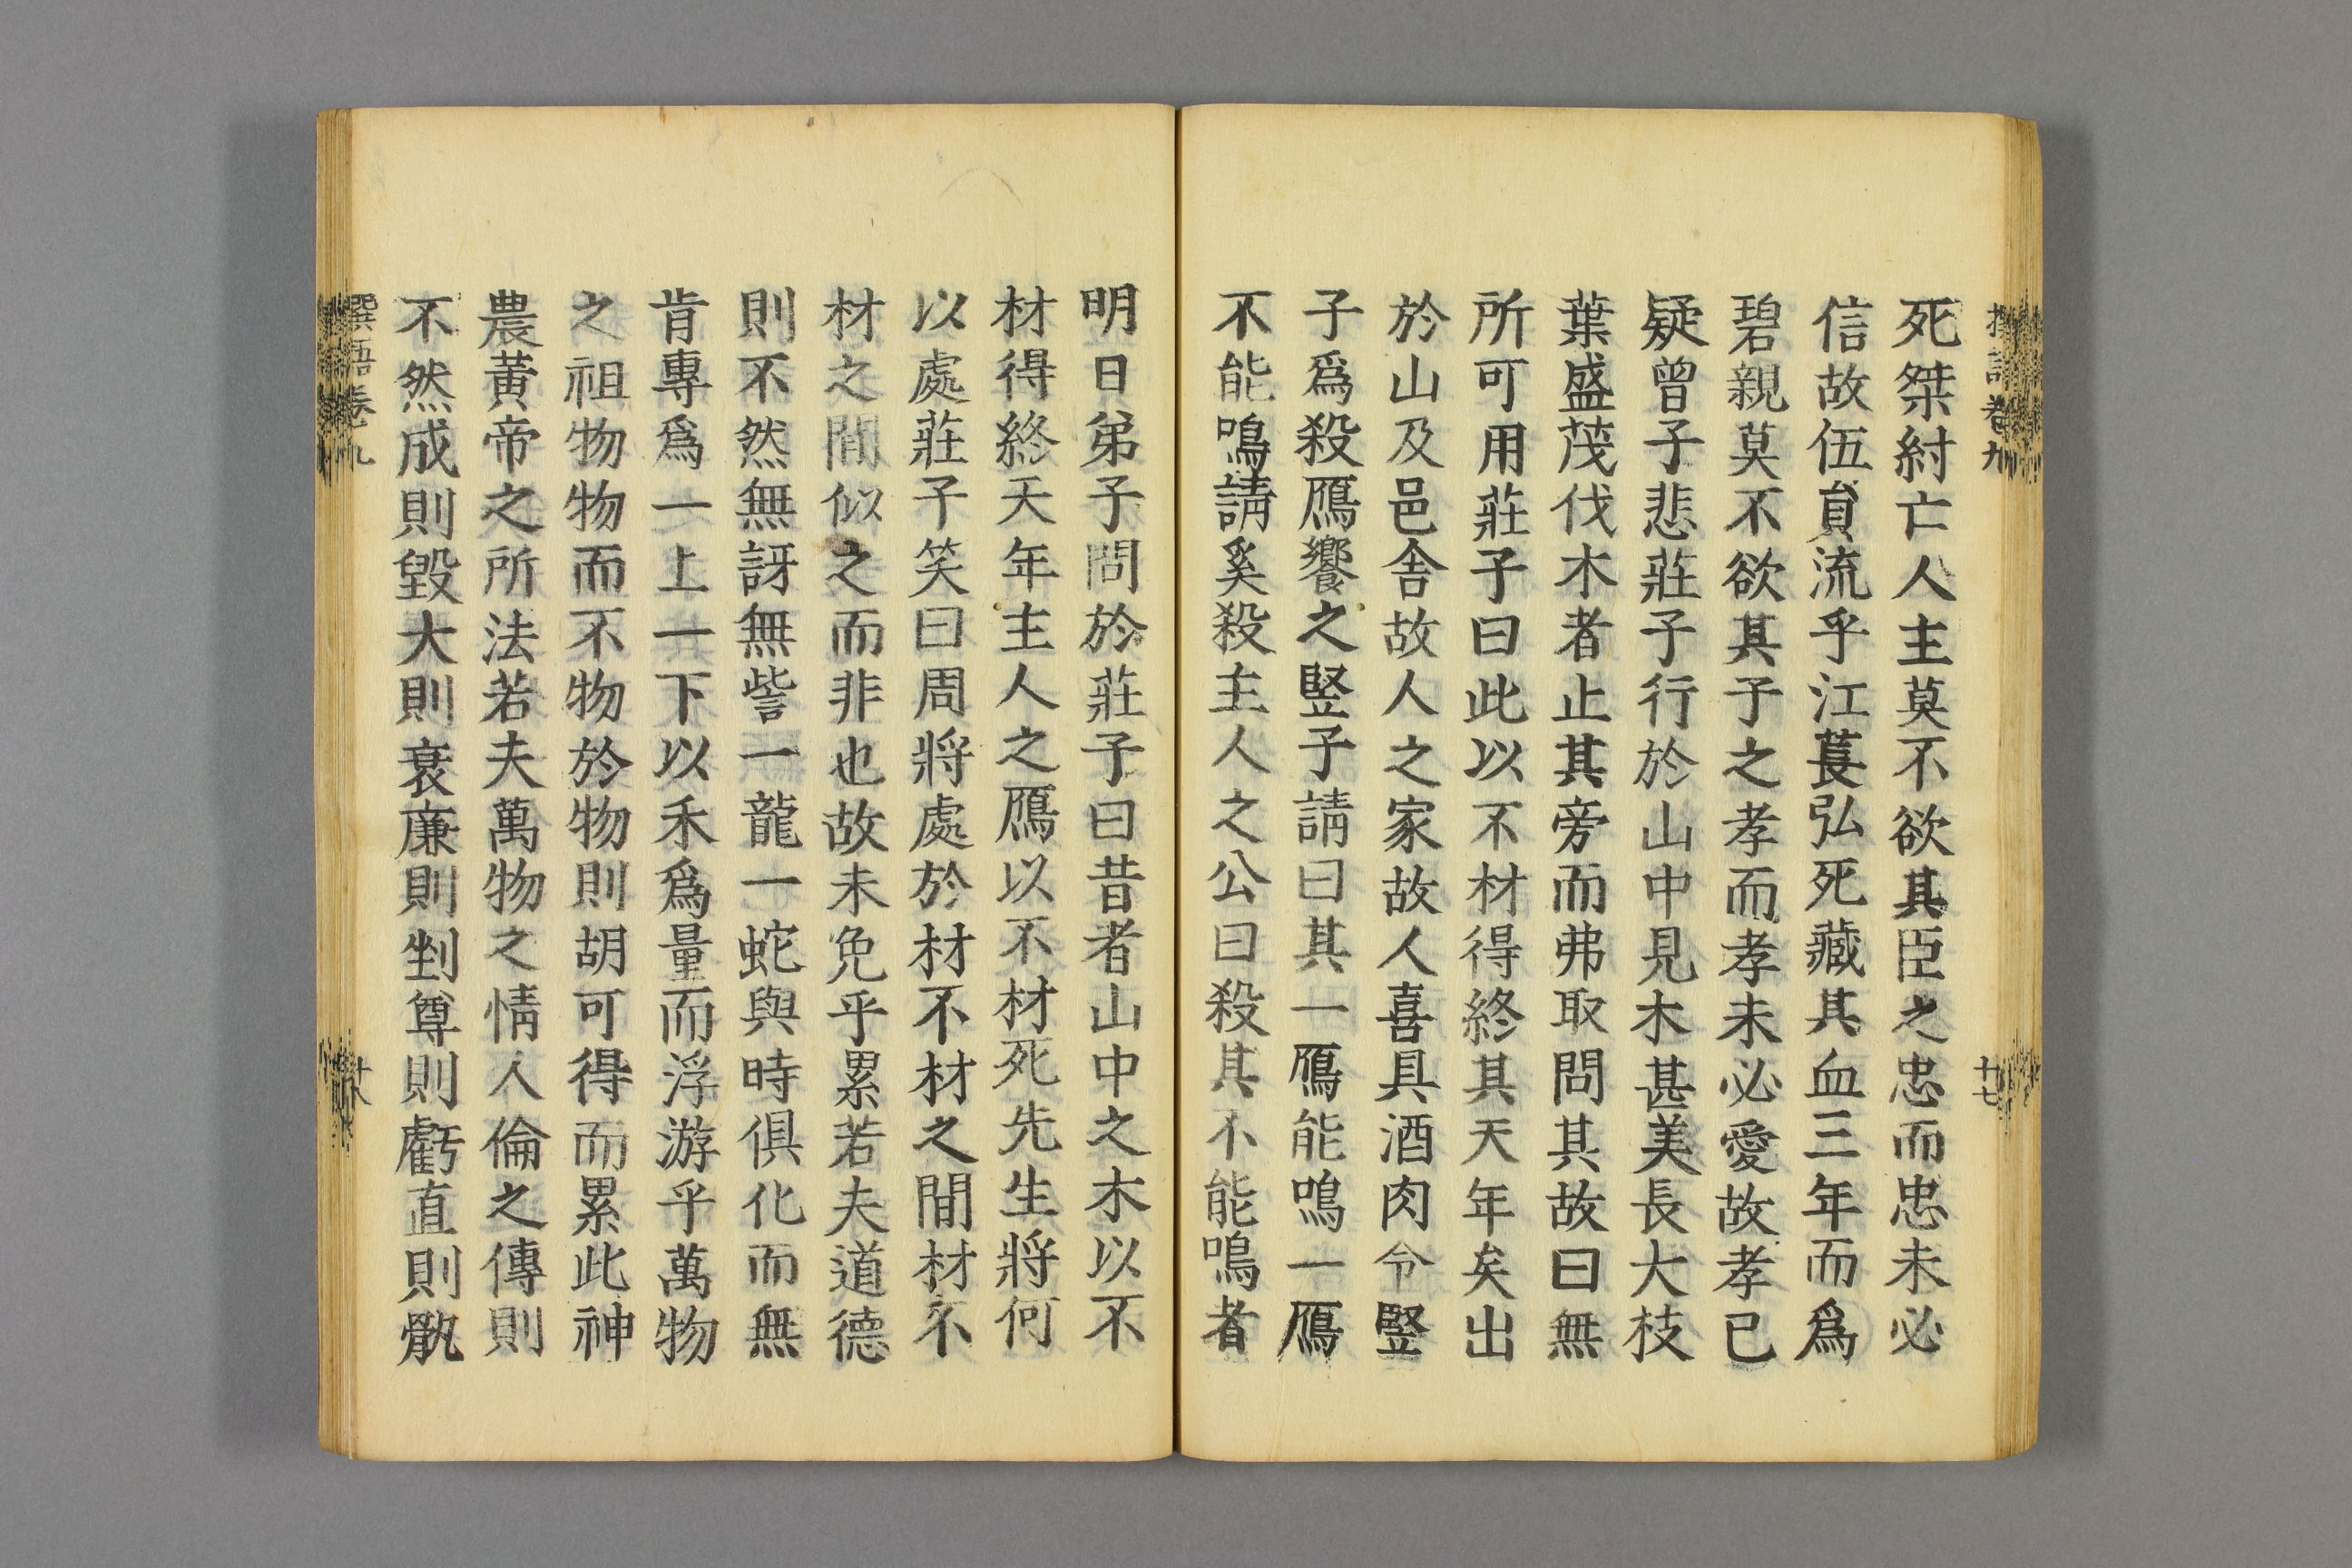 撰語卷九
十七
死桀紂亡人主莫不欲其臣之忠而忠未必
信故伍員流乎江萇弘死藏其血三年而爲
碧親莫不欲其子之孝而孝未必愛故孝己
疑曾子悲莊子行於山中見木甚美長大枝
葉盛茂伐木者止其旁而弗取問其故曰無
所可用莊子曰此以不材得終其天年矣出
於山及邑舍故人之家故人喜具酒肉令豎
子爲殺鴈饗之豎子請曰其一鴈能鳴一鴈
不能鳴請奚殺主人之公曰殺其不能鳴者
明日弟子問於莊子曰昔者山中之木以不
材得終天年主人之鴈以不材死先生將何
以處莊子笑曰周將處於材不材之間材不
材之間似之而非也故未免乎累若夫道德
則不然無訝無訾一龍一蛇與時俱化而無
肯專爲一上一下以禾爲量而浮游乎萬物
之祖物物而不物於物則胡可得而累此神
農黃帝之所法若夫萬物之情人倫之傳則
不然成則毀大則衰廉則剉尊則虧直則骫
撰語卷九
十八